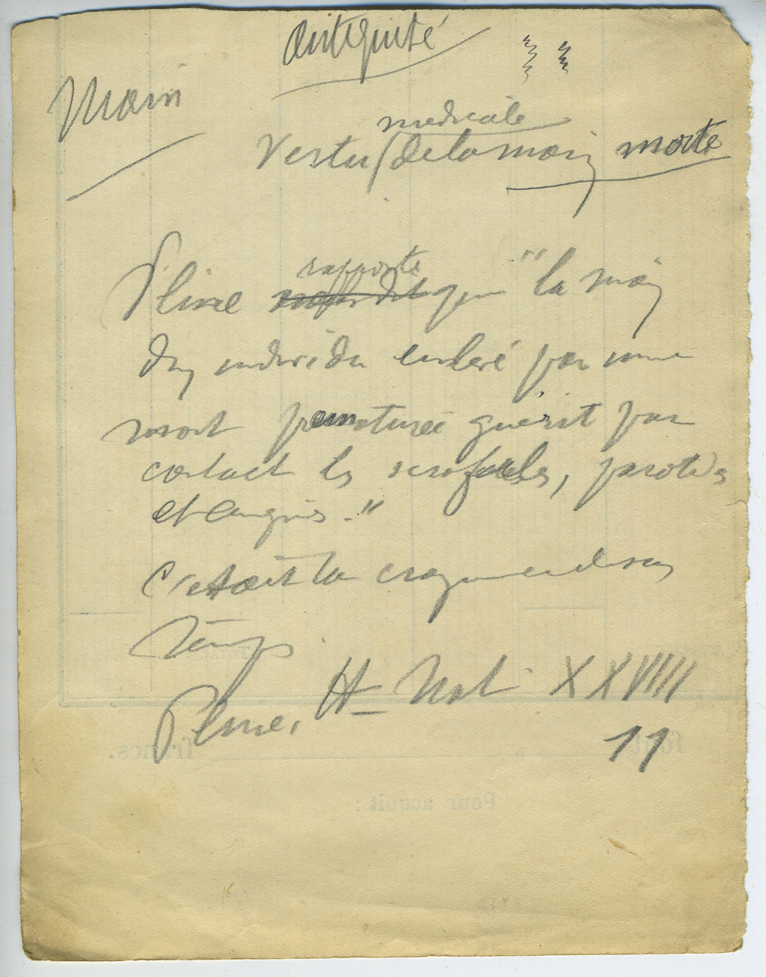 antiquité
Main
médicale
Vertu de la main morte
rapporte
Pline que "la main
d'un individu enlevé par une
mort prématurée guérit par
contact les scrofules, parotides
et angines."
C'était la croyance de son
temps.
Pline, H Nat XXVIII
11
font francs.
Pour acquit :